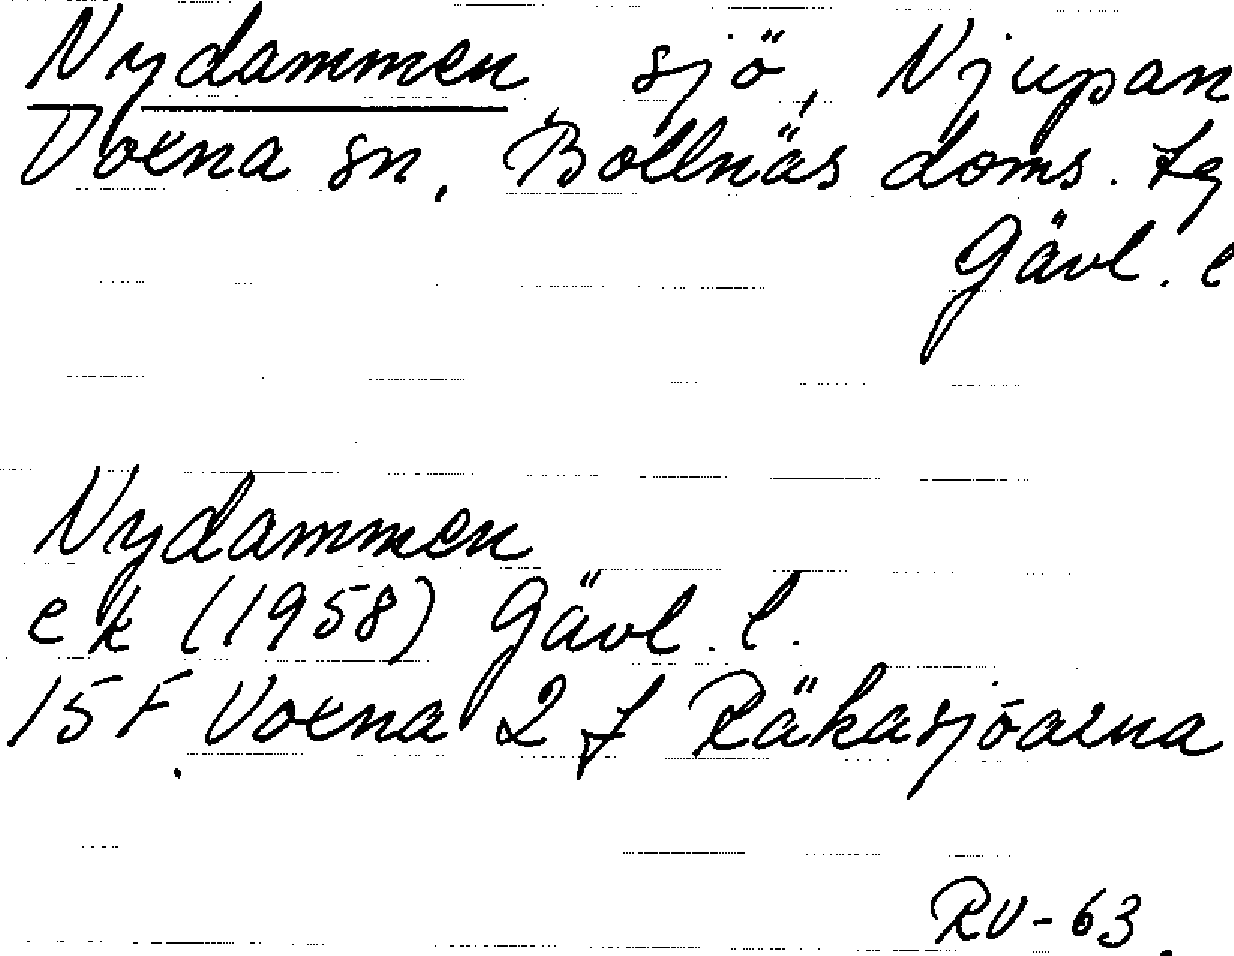 Nydammen sjö, Njupan
Voxna sn, Bollnäs doms. tg
Gävl. l
Nydammen
e k (1958) Gävl. l.
15 F Voxna 2 f Räkasjöarna
RV-63.